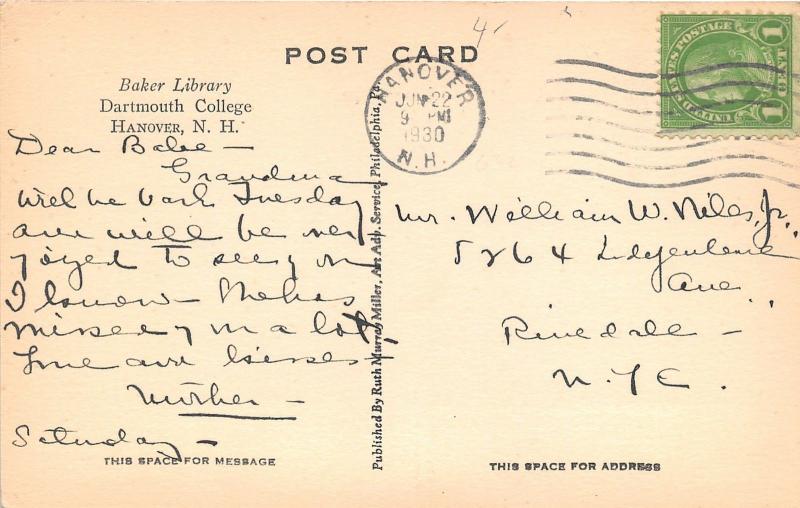 4
POST CARD
Baker Library
Dartmouth College
HANOVER, N. H.
HANOVER
JUN 22
9 PM
1930
N.H.
U.S. POSTAGE
1
1
Dear Babe —
Grandma
will be back Tuesday
and will be very
joyed to see you
I know — She has
missed you a lot,
Love and kisses
Mother —
Saturday —
THIS SPACE FOR MESSAGE
Published By Ruth Murray Miller, Art Adv. Service, Philadelphia, Pa.
Mr. William W. Niles, Jr.,
5264 Independence
Ave
Riverdale —
N. Y. C.
THIS SPACE FOR ADDRESS